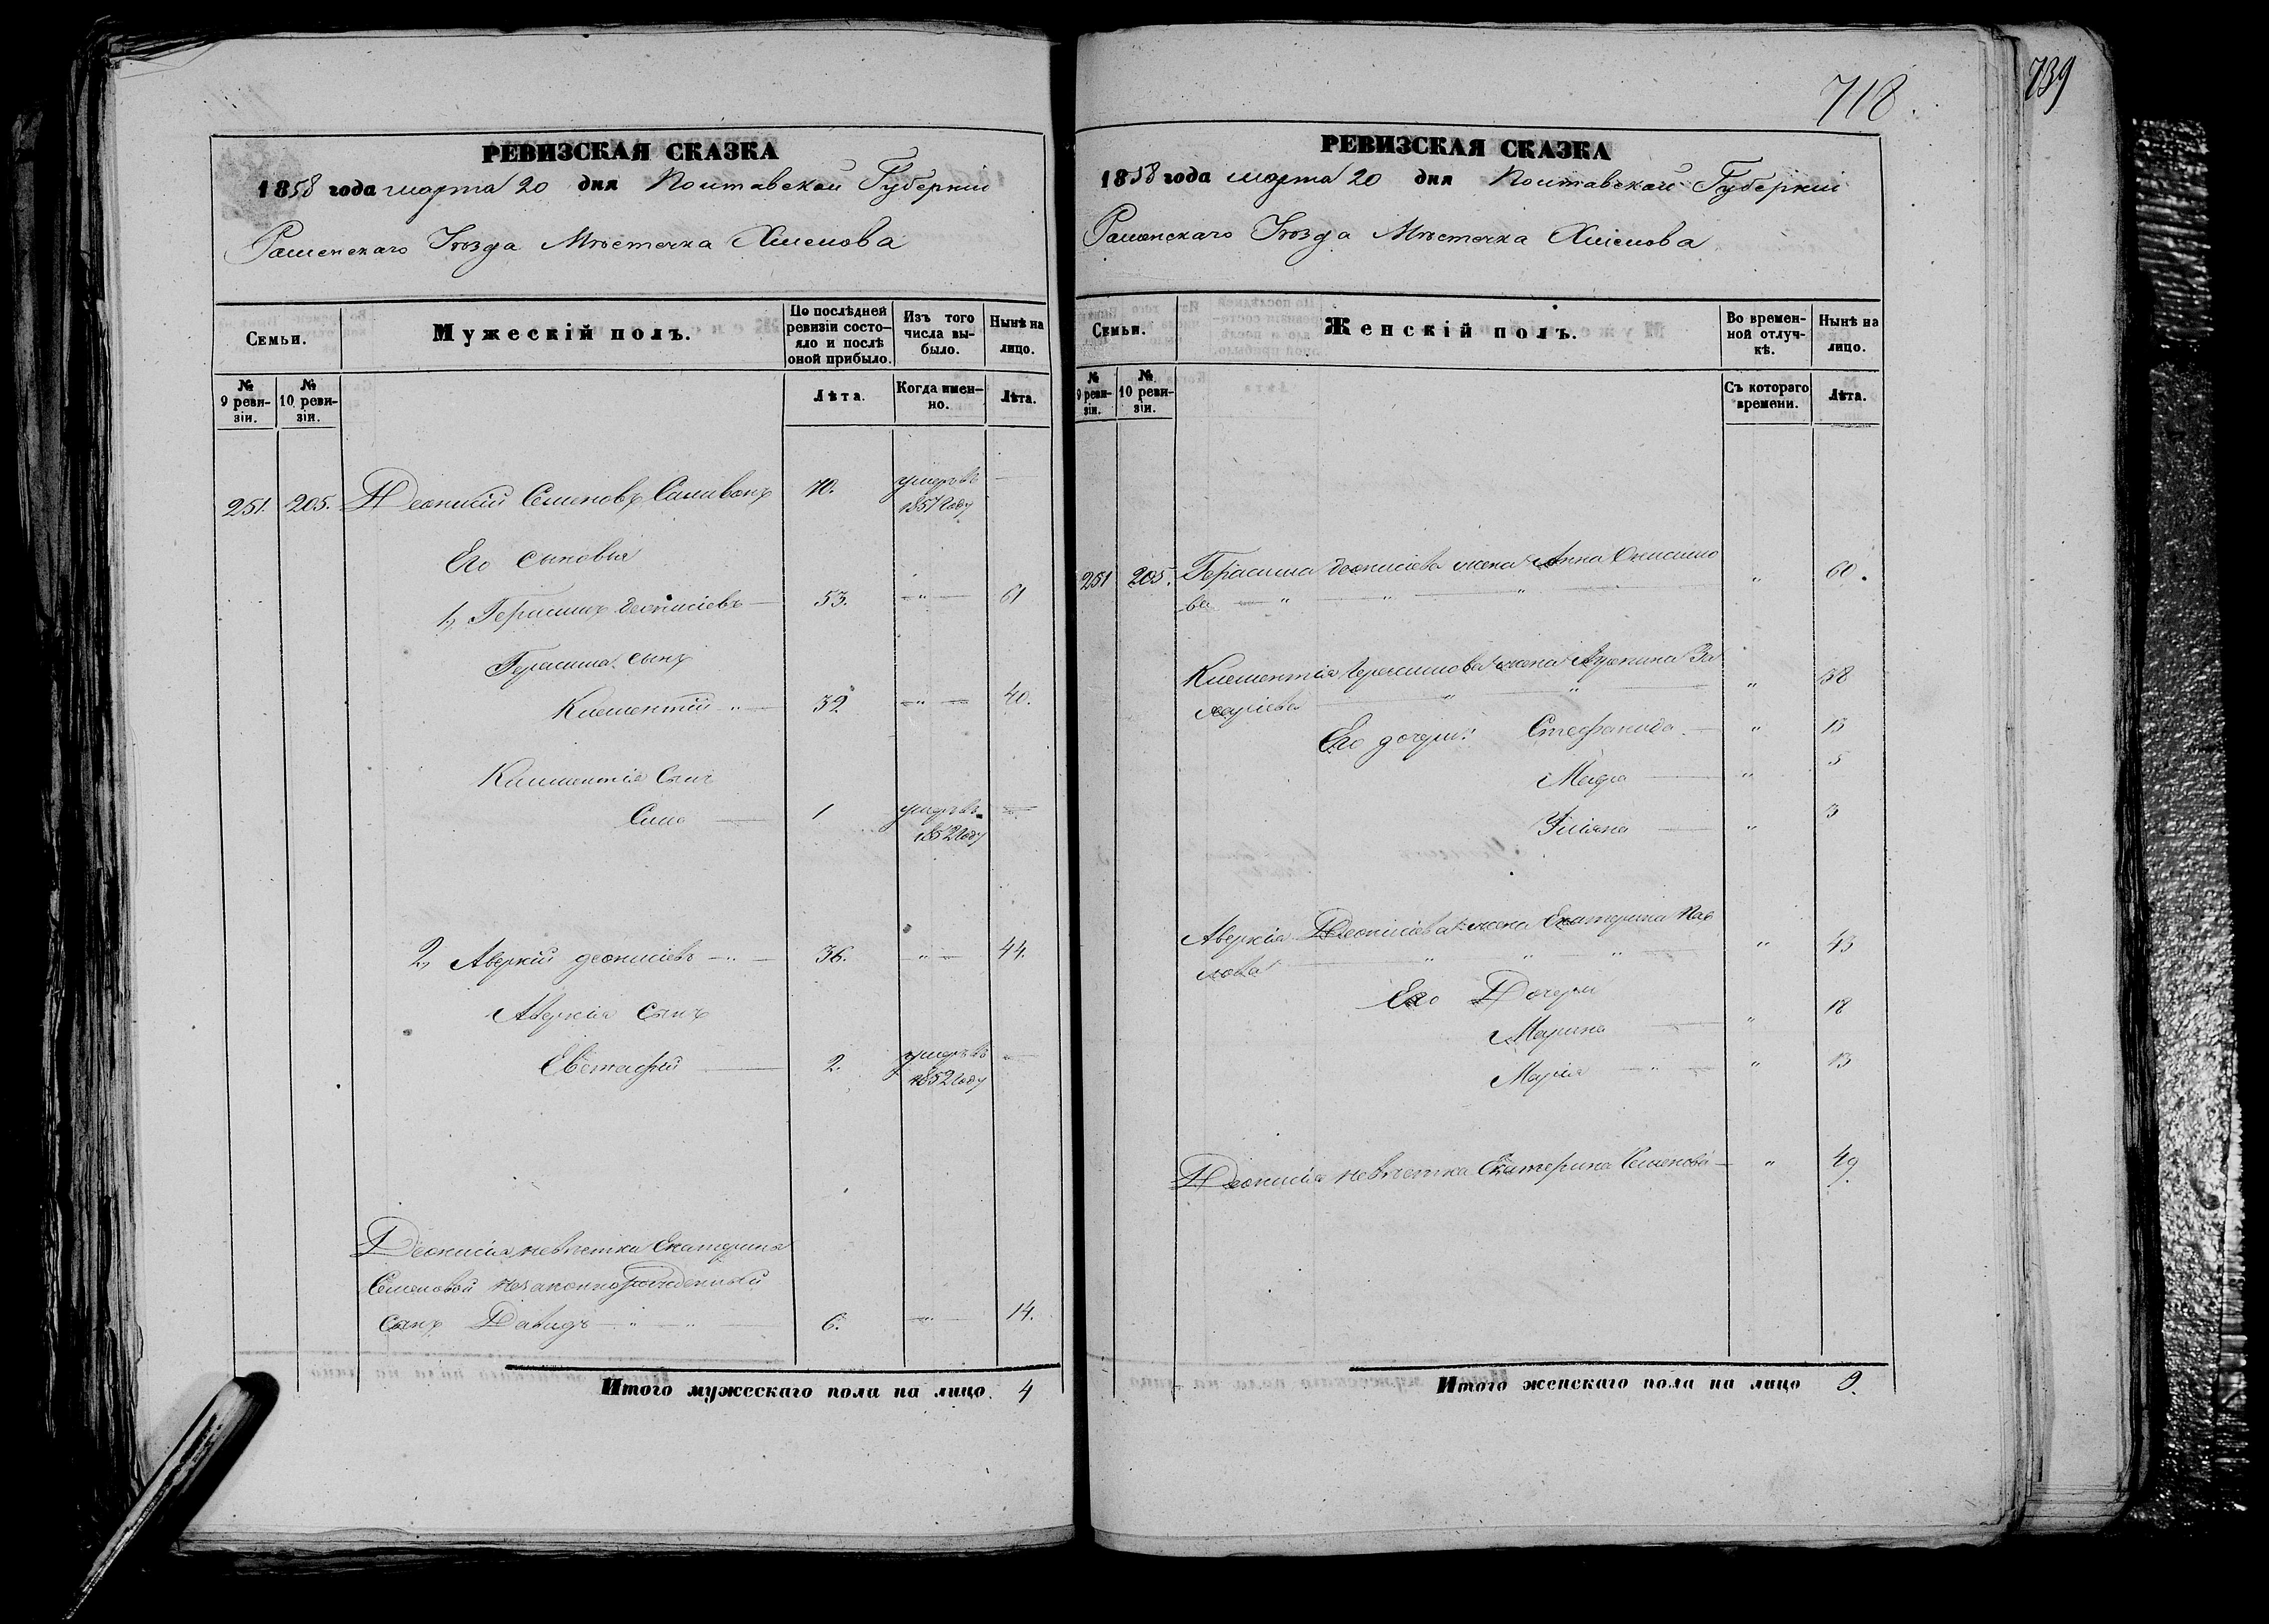 718.
739
РЕВИЗСКАЯ СКАЗКА
1858 года марта 20 дня Полтавской Губерніи
Роменскаго Уѣзда Мѣстечка Хмелова
Семьи.
Мужескій полъ.
По послѣдней ревизіи состояло и послѣ оной прибыло.
Изъ того числа выбыло.
Нынѣ на лицо.
№ 9 ревизіи.
№ 10 ревизіи.
Лѣта.
Когда именно.
Лѣта.
251. 205. Деонисій Семеновъ 70. умеръ въ 1857 году
Его сыновья
1, Герасимъ Деонисіевъ 53. — " — 61
Герасима сынъ
Климентій " — 32 — " — 40.
Климентія Сынъ
1 умеръ въ 1852 году
2, Аверкій Деонисіевъ — " — 36. " — 44.
Аверкія Сынъ
Евстафій — 2. умеръ въ 1852 году
Деонисія невѣстки Екатерины
Семеновой незаконнорожденный
сынъ Давидъ — " — " — 6. — " — 14.
Итого мужескаго пола на лицо. 4
РЕВИЗСКАЯ СКАЗКА
1858 года марта 20 дня Полтавской Губерніи
Роменскаго Уѣзда Мѣстечка Хмелова
Семьи.
Женскій полъ.
Во временной отлучкѣ.
Нынѣ на лицо.
№ 9 ревизіи.
№ 10 ревизіи.
Съ котораго времени.
Лѣта.
251 205. Герасима Деонисіева жена Анна Онисимо
ва — " — " — " — " 60.
Климентія Герасимова жена
" 38
Его дочери: Стефанида — " 13
" 5
Уліяна — " 3
Аверкія Деонисіева жена Екатерина Пав
лова — " — " — " — " 43
Его Дочери
Марина — " 18
Марія — " — " 13
Деонисія невѣстка Екатерина Семенова — " 49
Итого женскаго пола на лицо 9.